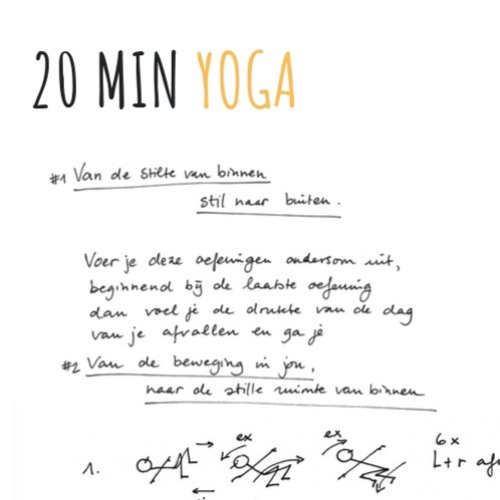 20 MIN YOGA
#1 Van de stilte van binnen
stil naar buiten.
Voer je deze oefeningen andersom uit,
beginnend bij de laatste oefening
dan voel je de drukte van de dag
van je afvallen en ga je
#2 Van de beweging in jou,
naar de stille ruimte van binnen
ex ex 6x
1. L+r